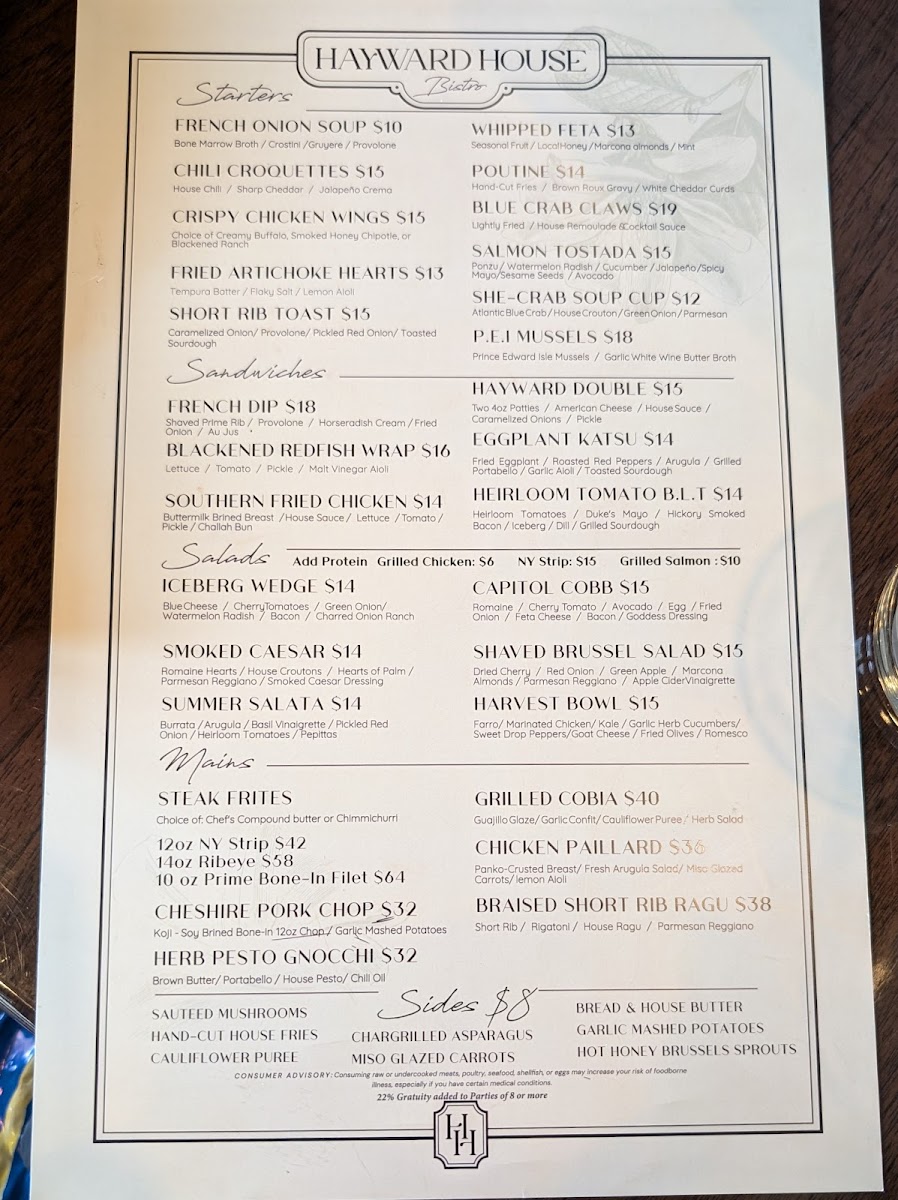 HAYWARD HOUSE
Bistro
Starters
FRENCH ONION SOUP $10
Bone Marrow Broth / Crostini /Gruyere / Provolone
CHILI CROQUETTES $15
House Chili / Sharp Cheddar / Jalapeño Crema
CRISPY CHICKEN WINGS $15
Choice of Creamy Buffalo, Smoked Honey Chipotle, or
Blackened Ranch
FRIED ARTICHOKE HEARTS $13
Tempura Batter / Flaky Salt / Lemon Aioli
SHORT RIB TOAST $15
Caramelized Onion/ Provolone/ Pickled Red Onion/ Toasted
Sourdough
WHIPPED FETA $13
Seasonal Fruit / Local Honey /Marcona almonds / Mint
POUTINE $14
Hand-Cut Fries / Brown Roux Gravy / White Cheddar Curds
BLUE CRAB CLAWS $19
Lightly Fried / House Remoulade &Cocktail Sauce
SALMON TOSTADA $15
Ponzu / Watermelon Radish / Cucumber /Jalapeño/Spicy
Mayo/Sesame Seeds / Avocado
SHE-CRAB SOUP CUP $12
Atlantic Blue Crab / House Crouton / Green Onion / Parmesan
P.E.I MUSSELS $18
Prince Edward Isle Mussels / Garlic White Wine Butter Broth
Sandwiches
FRENCH DIP $18
Shaved Prime Rib / Provolone / Horseradish Cream /Fried
Onion / Au Jus
BLACKENED REDFISH WRAP $16
Lettuce / Tomato / Pickle / Malt Vinegar Aioli
SOUTHERN FRIED CHICKEN $14
Buttermilk Brined Breast /House Sauce / Lettuce /Tomato /
Pickle / Challah Bun
HAYWARD DOUBLE $15
Two 4oz Patties / American Cheese / House Sauce /
Caramelized Onions / Pickle
EGGPLANT KATSU $14
Fried Eggplant / Roasted Red Peppers / Arugula / Grilled
Portabello / Garlic Aioli / Toasted Sourdough
HEIRLOOM TOMATO B.L.T $14
Heirloom Tomatoes / Duke's Mayo / Hickory Smoked
Bacon / Iceberg / Dill / Grilled Sourdough
Salads
Add Protein Grilled Chicken: $6 NY Strip: $15 Grilled Salmon : $10
ICEBERG WEDGE $14
Blue Cheese / Cherry Tomatoes / Green Onion/
Watermelon Radish / Bacon / Charred Onion Ranch
SMOKED CAESAR $14
Romaine Hearts / House Croutons / Hearts of Palm /
Parmesan Reggiano / Smoked Caesar Dressing
SUMMER SALATA $14
Burrata /Arugula / Basil Vinaigrette / Pickled Red
Onion / Heirloom Tomatoes / Pepittas
CAPITOL COBB $15
Romaine / Cherry Tomato / Avocado / Egg / Fried
Onion / Feta Cheese / Bacon / Goddess Dressing
SHAVED BRUSSEL SALAD $15
Dried Cherry / Red Onion / Green Apple / Marcona
Almonds / Parmesan Reggiano / Apple Cider Vinaigrette
HARVEST BOWL $15
Farro/ Marinated Chicken/ Kale / Garlic Herb Cucumbers/
Sweet Drop Peppers/Goat Cheese / Fried Olives / Romesco
Mains
STEAK FRITES
Choice of: Chef's Compound butter or Chimmichurri
12oz NY Strip $42
14oz Ribeye $58
10 oz Prime Bone-In Filet $64
CHESHIRE PORK CHOP $32
Koji - Soy Brined Bone-in 12oz Chop / Garlic Mashed Potatoes
HERB PESTO GNOCCHI $32
Brown Butter/ Portabello / House Pesto/ Chili Oil
GRILLED COBIA $40
Guajillo Glaze/ Garlic Confit/ Cauliflower Puree / Herb Salad
CHICKEN PAILLARD $36
Panko-Crusted Breast/ Fresh Arugula Salad/ Miso Glazed
Carrots/ lemon Aioli
BRAISED SHORT RIB RAGU $38
Short Rib / Rigatoni / House Ragu / Parmesan Reggiano
Sides $8
SAUTEED MUSHROOMS
HAND-CUT HOUSE FRIES
CAULIFLOWER PUREE
CHARGRILLED ASPARAGUS
MISO GLAZED CARROTS
BREAD & HOUSE BUTTER
GARLIC MASHED POTATOES
HOT HONEY BRUSSELS SPROUTS
CONSUMER ADVISORY: Consuming raw or undercooked meats, poultry, seafood, shellfish, or eggs may increase your risk of foodborne
illness, especially if you have certain medical conditions.
22% Gratuity added to Parties of 8 or more
HH